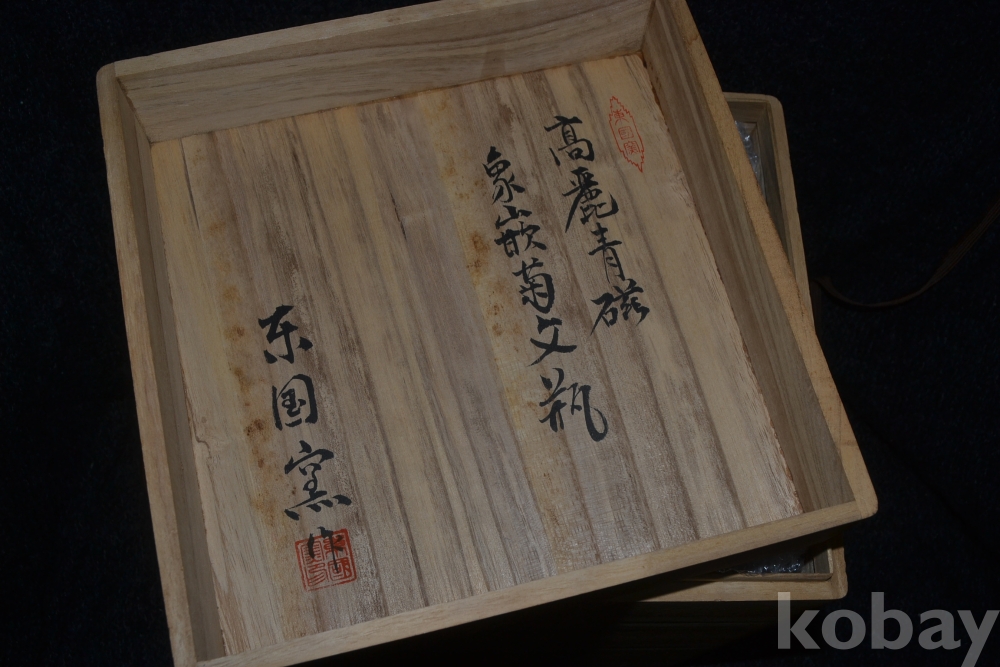 東国窯
高麗青磁
象嵌菊文瓶
东国窯
kobay